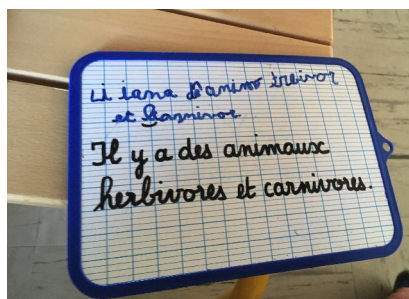 Li iana d animo treivor
et Carnivor
Il y a des animaux
herbivores et carnivores.